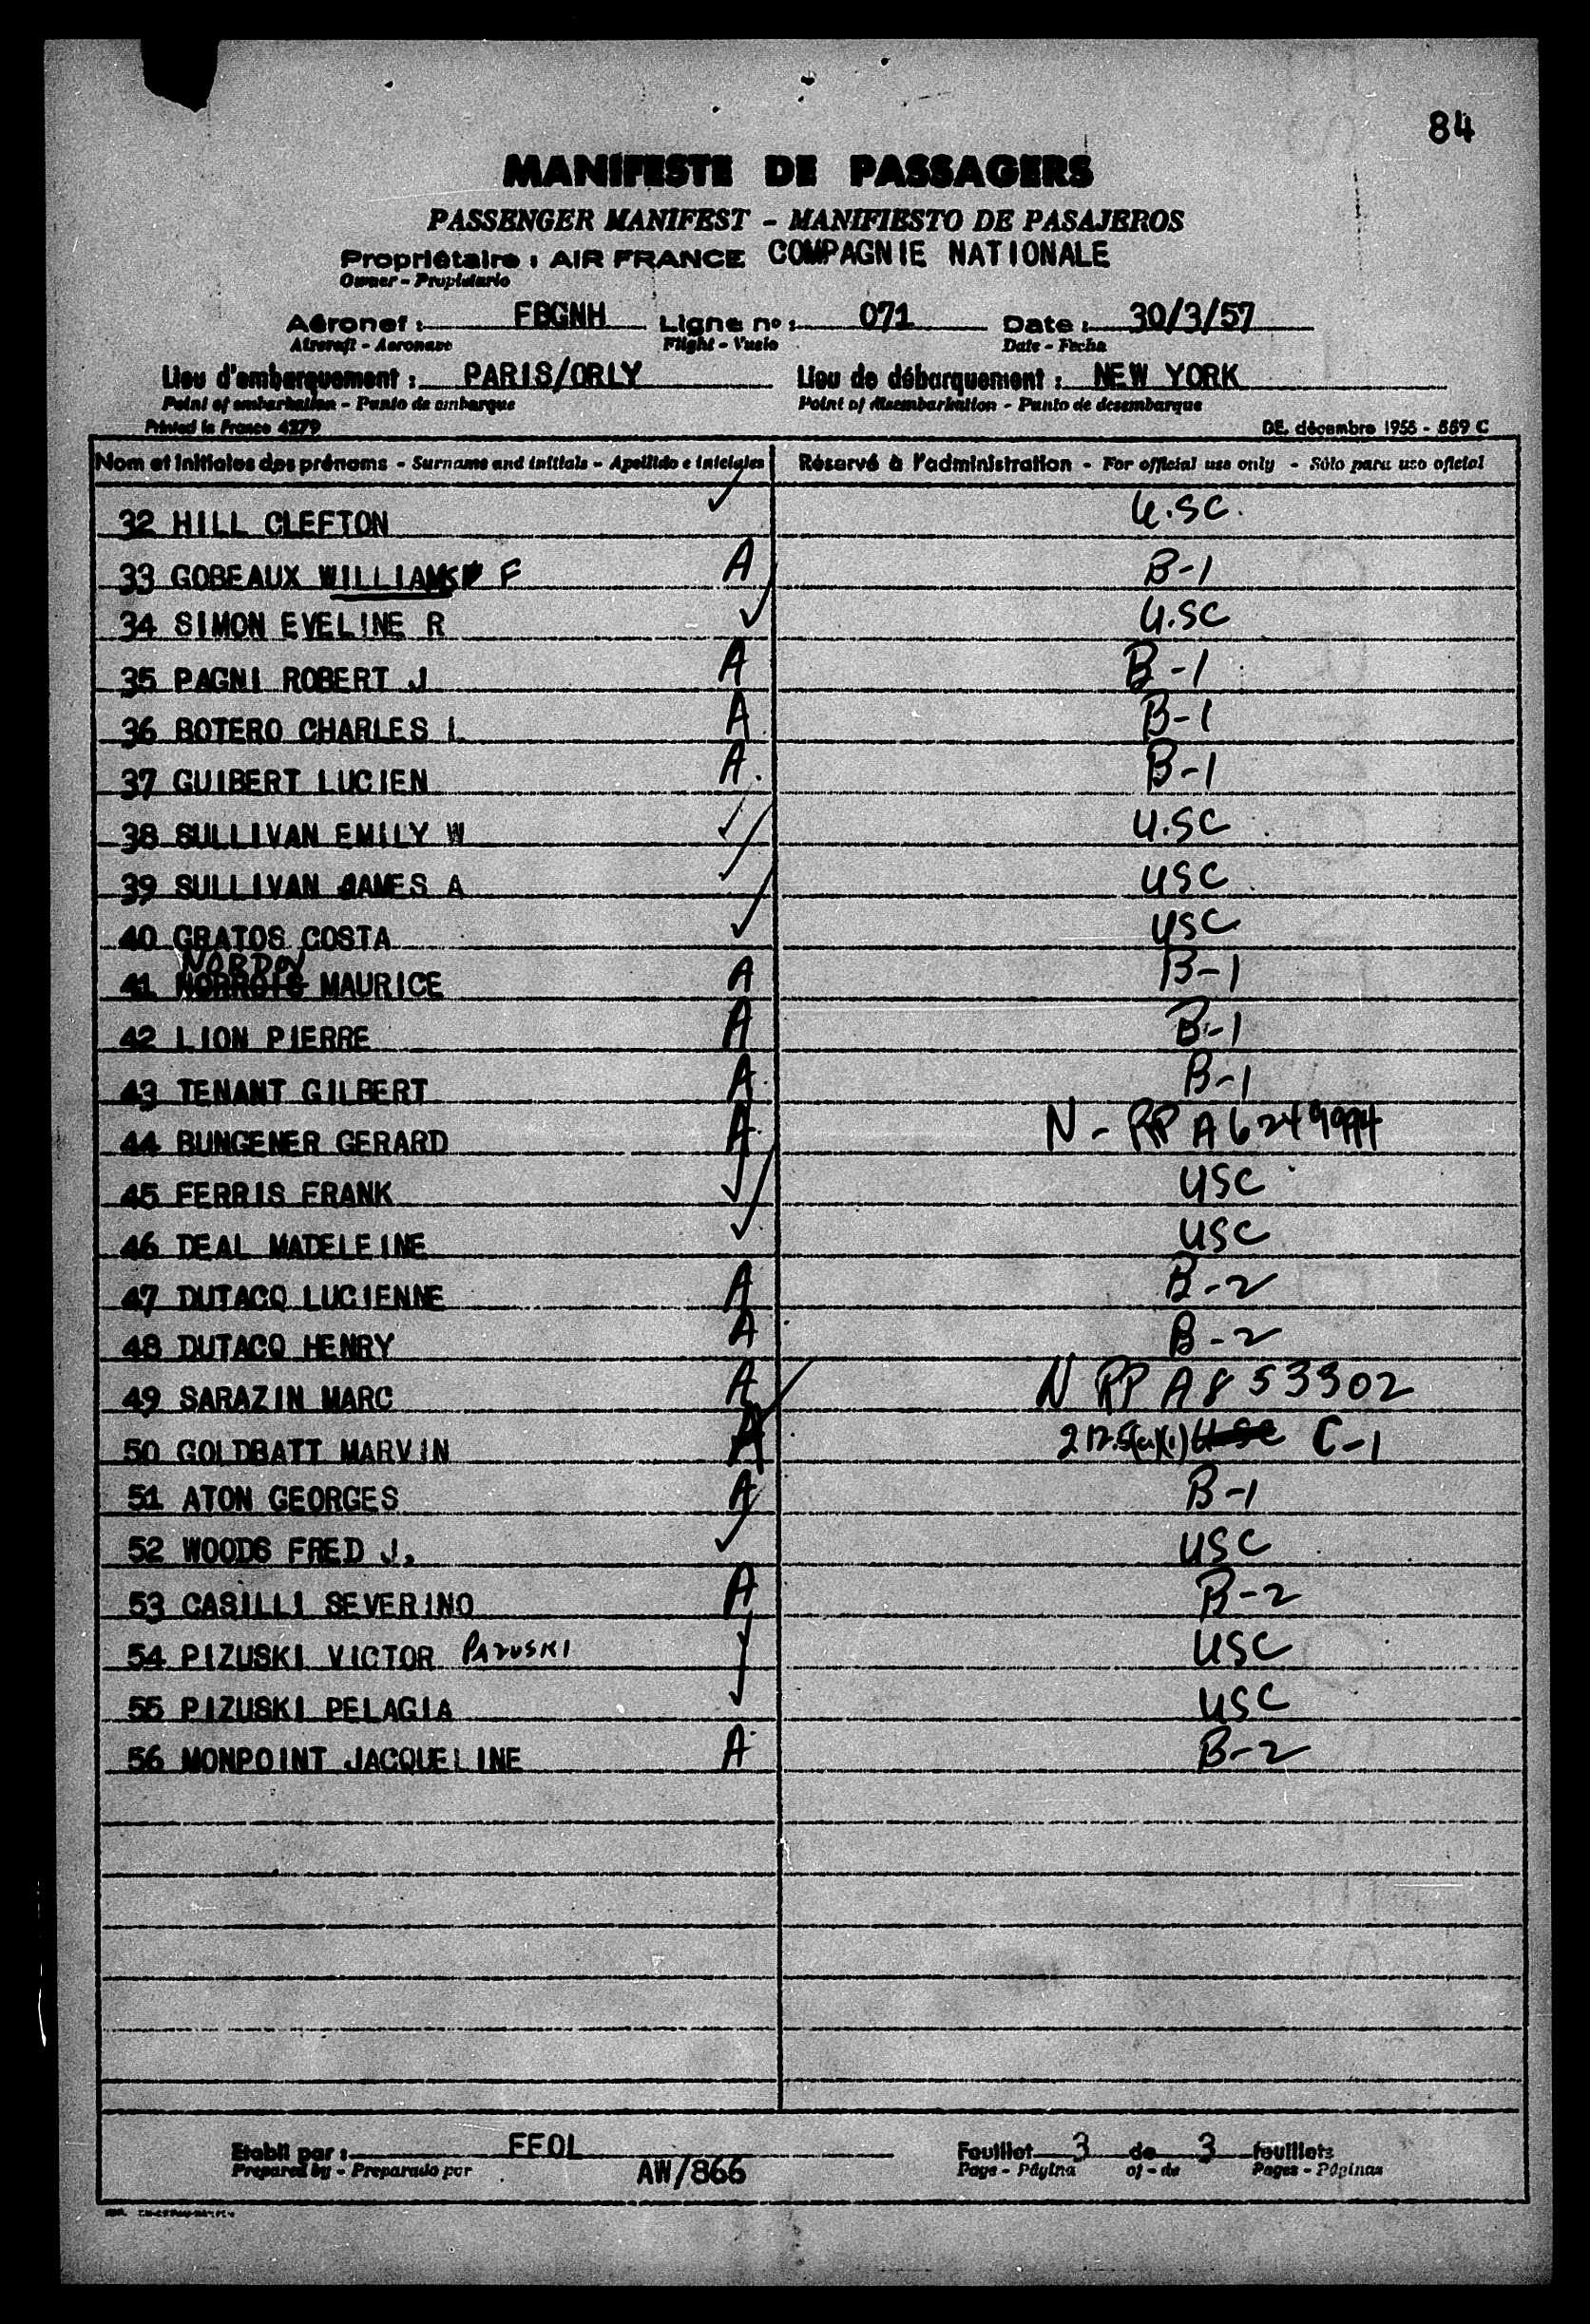 84
MANIFESTE DE PASSAGERS
PASSENGER MANIFEST - MANIFIESTO DE PASAJEROS
Propriétaire : AIR FRANCE COMPAGNIE NATIONALE
Owner - Propietario
Aéronef : FBGNH Ligne no : 071 Date : 30/3/57
Aircraft - Aeronave Flight - Vuelo Date - Fecha
Lieu d'embarquement : PARIS/ORLY Lieu de débarquement : NEW YORK
Point of embarkation - Punto de embarque Point of disembarkation - Punto de desembarque
Printed in France 4279 DE. décembre 1955 - 559 C
Nom et initiales des prénoms - Surname and initials - Apellido e iniciales Réservé à l'administration - For official use only - Sólo para uso oficial
32 HILL CLEFTON ✓ U.SC.
33 GOBEAUX WILLIAMS F A B-1
34 SIMON EVELINE R ✓ U.SC
35 PAGNI ROBERT J A B-1
36 BOTERO CHARLES L A B-1
37 GUIBERT LUCIEN A. B-1
38 SULLIVAN EMILY W ✓ U.SC
39 SULLIVAN JAMES A ✓ USC
40 GRATOS COSTA ✓ USC
NORDON
41 NORROIS MAURICE A B-1
42 LION PIERRE A B-1
43 TENANT GILBERT A B-1
44 BUNGENER GERARD A N - RP A6249994
45 FERRIS FRANK ✓ USC
46 DEAL MADELEINE ✓ USC
47 DUTACQ LUCIENNE A B-2
48 DUTACQ HENRY A B-2
49 SARAZIN MARC A N RP A853302
50 GOLDBATT MARVIN A 212.5(a)(1) USC C-1
51 ATON GEORGES A B-1
52 WOODS FRED J. ✓ USC
53 CASILLI SEVERINO A B-2
54 PIZUSKI VICTOR PAZUSKI ✓ USC
55 PIZUSKI PELAGIA ✓ USC
56 MONPOINT JACQUELINE A B-2
Etabli par : FFOL Feuillet 3 de 3 feuillets
Prepared by - Preparado por AW/866 Page - Página of - de Pages - Páginas